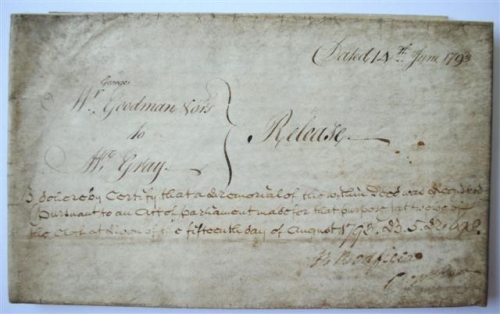 Dated 14th June 179
George
Wm. Goodman & ors
to
Wm. Gray
Release
I do hereby Certify that a Memorial of the within Deed was
Pursuant to an Act of parliament made for that purpose at twelve of
the Clock at Noon of the fifteenth day of August 179